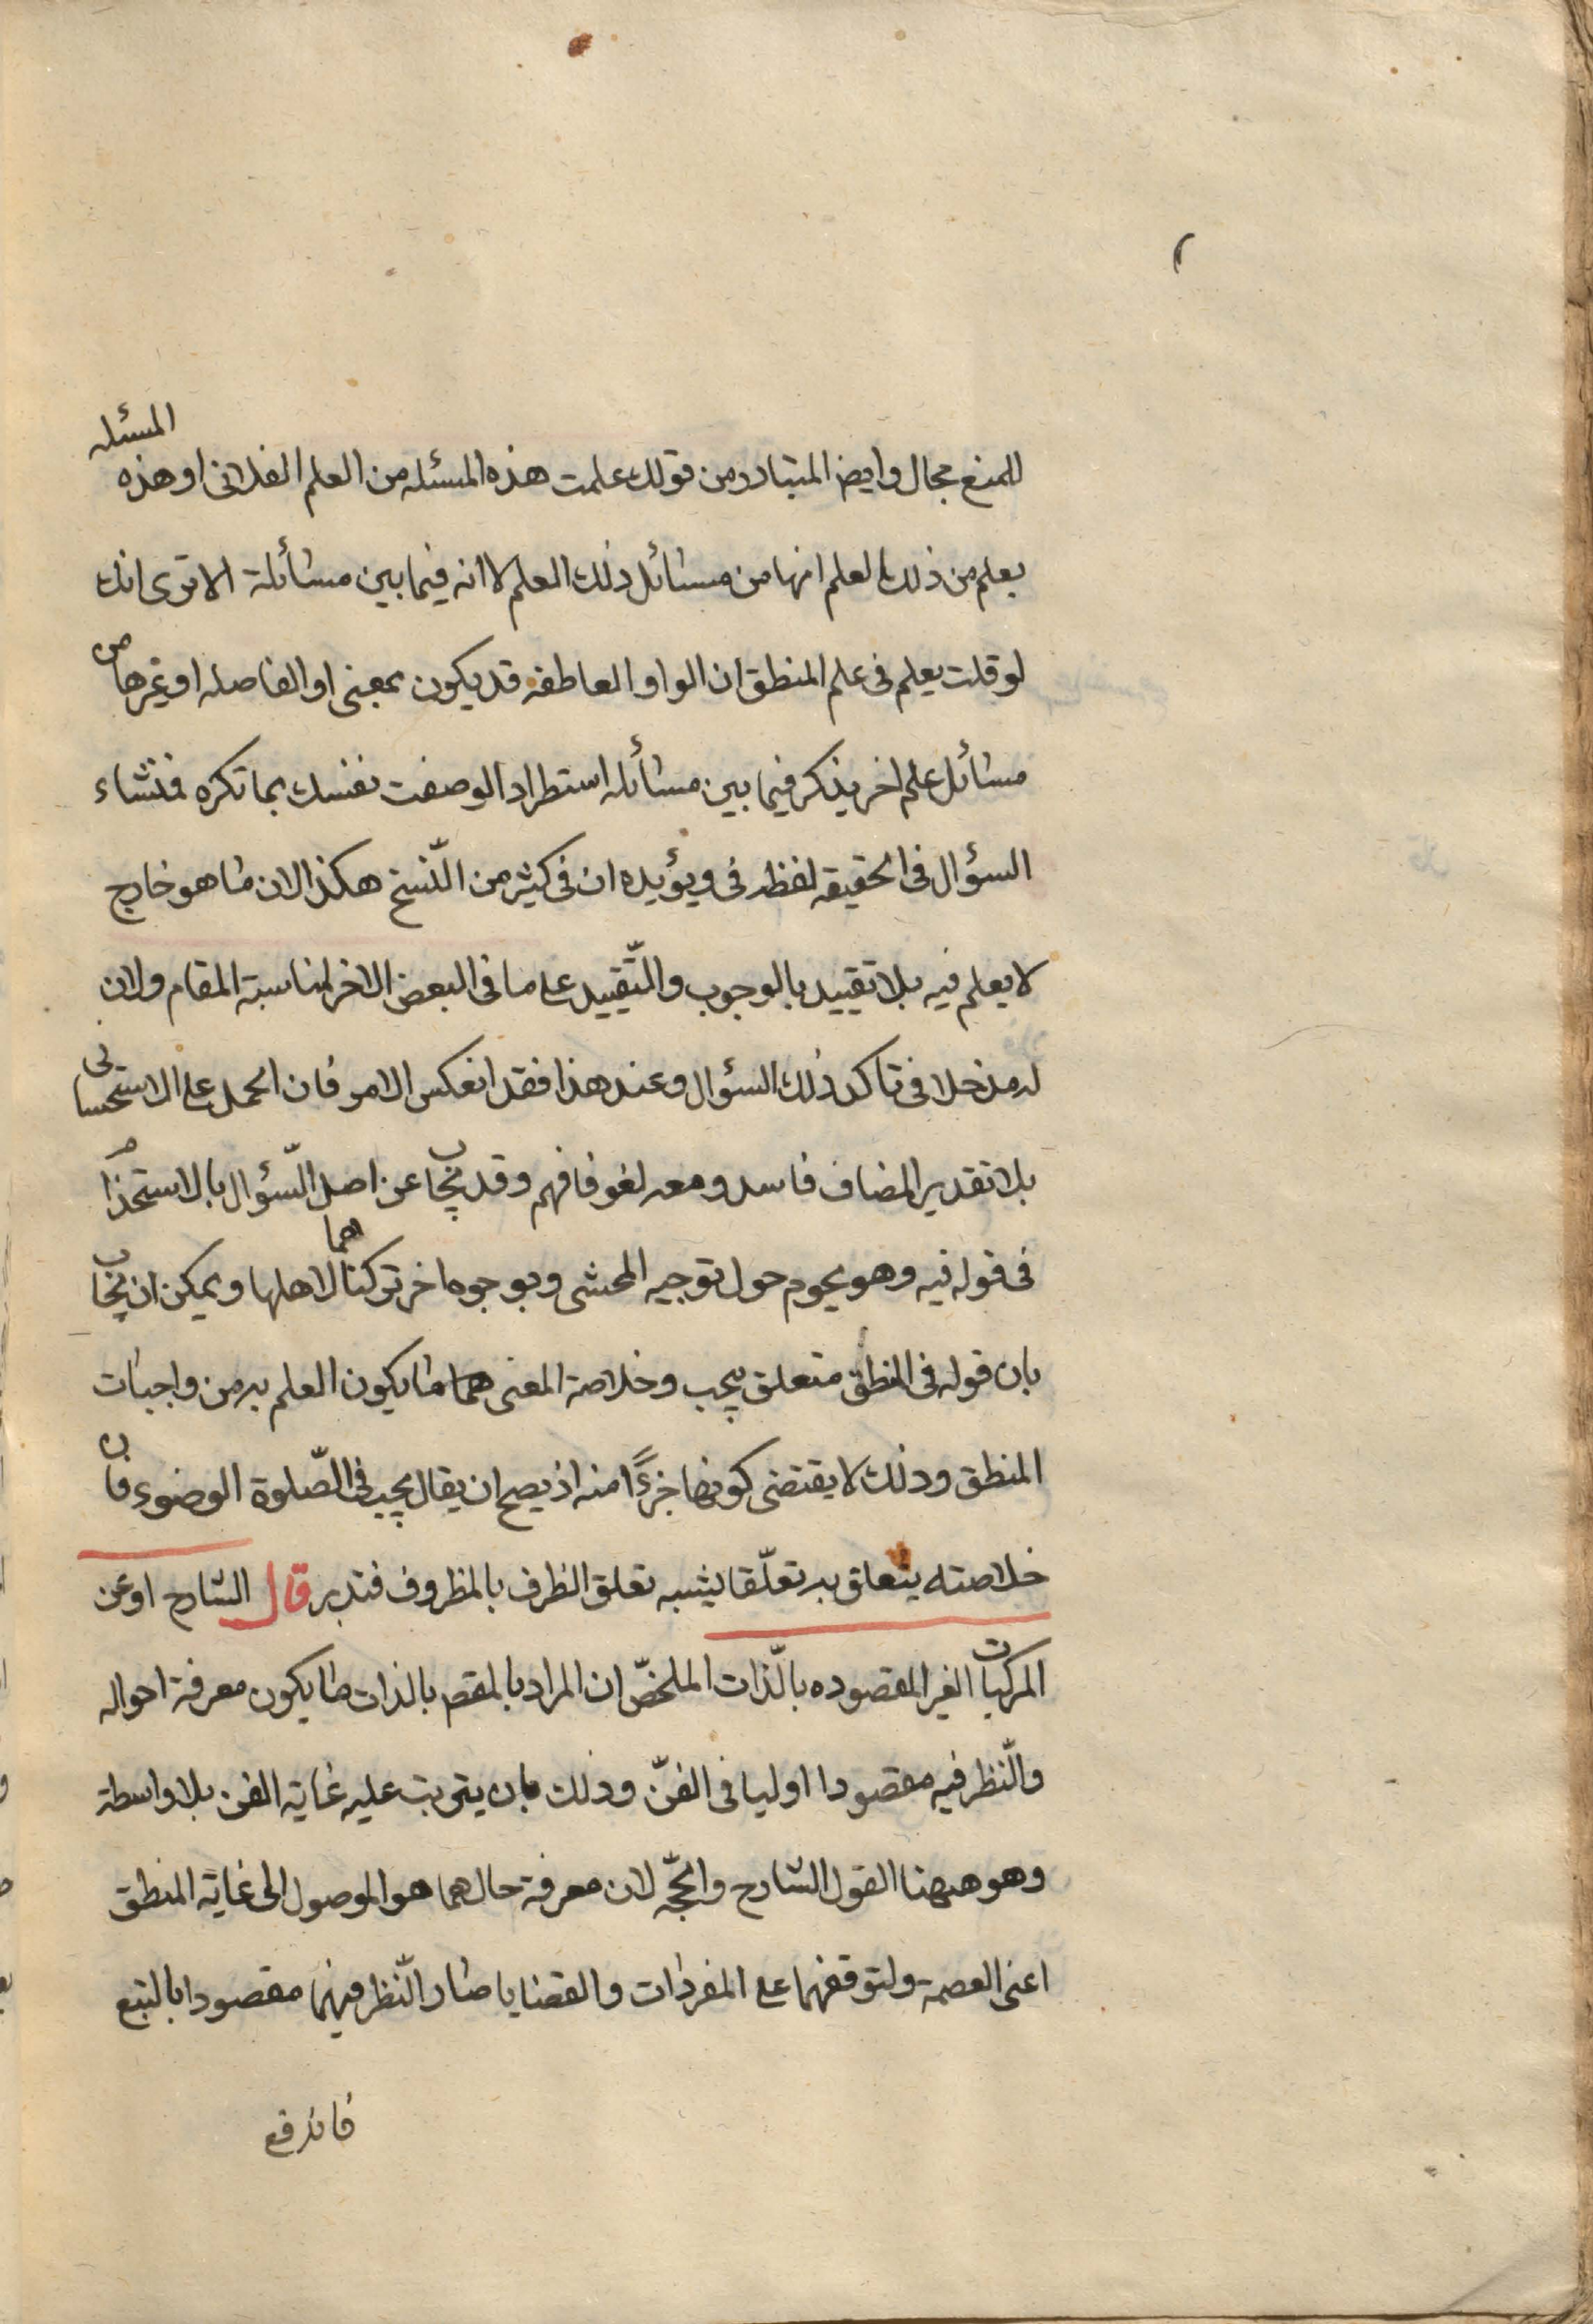 للمنع مجال وايض المتبادر من قولك علمت هذه المسئله من العلم الفلانى او هذه المسئله
يعلم من ذلك العلم انها من مسائل ذلك العلم لا انه فيما بين مسائلة الا ترى انك
لو قلت يعلم فى علم المنطق ان الواو العاطفه قد يكون بمعنى او الفاصله او غيرها من
مسائل علم اخر يذكر فيما بين مسائله استطرادا لوصفت نفسك بما تكره فنشاء
السؤال فى الحقيقه لفظ فى ويؤيده ان فى كثير من النّسخ هكذا لان ما هو خارج
لا يعلم فيه بلا تقييد بالوجوب والتّقييد على ما فى البعض الاخر لمناسبة المقام ولان
له مدخلا فى تاكد ذلك السؤال وعند هذا فقد انعكس الامر فان الحمل على الاستحسانى
بلا تقدير المضاف فاسد ومعه لغو فافهم وقد يجاب عن اصل السّؤال بالاستخدام
فى قوله فيه وهو يحوم حول توجيه المحشى وبوجوه اخر تركناها لاهلها ويمكن ان يجاب
بان قوله فى المنطق متعلق بيجب وخلاصة المعنى هما ما يكون العلم به من واجبات
المنطق وذلك لا يقتضى كونها جزءًا منه اذ يصح ان يقال يجب فى الصّلوة الوضوء فان
خلاصته يتعلق به تعلّقا يشبه تعلق الظرف بالمظروف فتدبر قال الشارح او عن
المركبات الغير المقصوده بالذّات الملخصّ ان المراد بالمقص بالذات ما يكون معرفة احواله
والنّظر فيه مقصودا اوليا فى الفنّ وذلك بان يترتب عليه غاية الفن بلا واسطة
وهو ههنا القول الشارح والحجّه لان معرفة حالهما هو الموصول الى غاية المنطق
اعنى العصمة ولتوقفهما على المفردات والقضايا صار النّظر فيهما مقصودا بالتبع
فاندفع